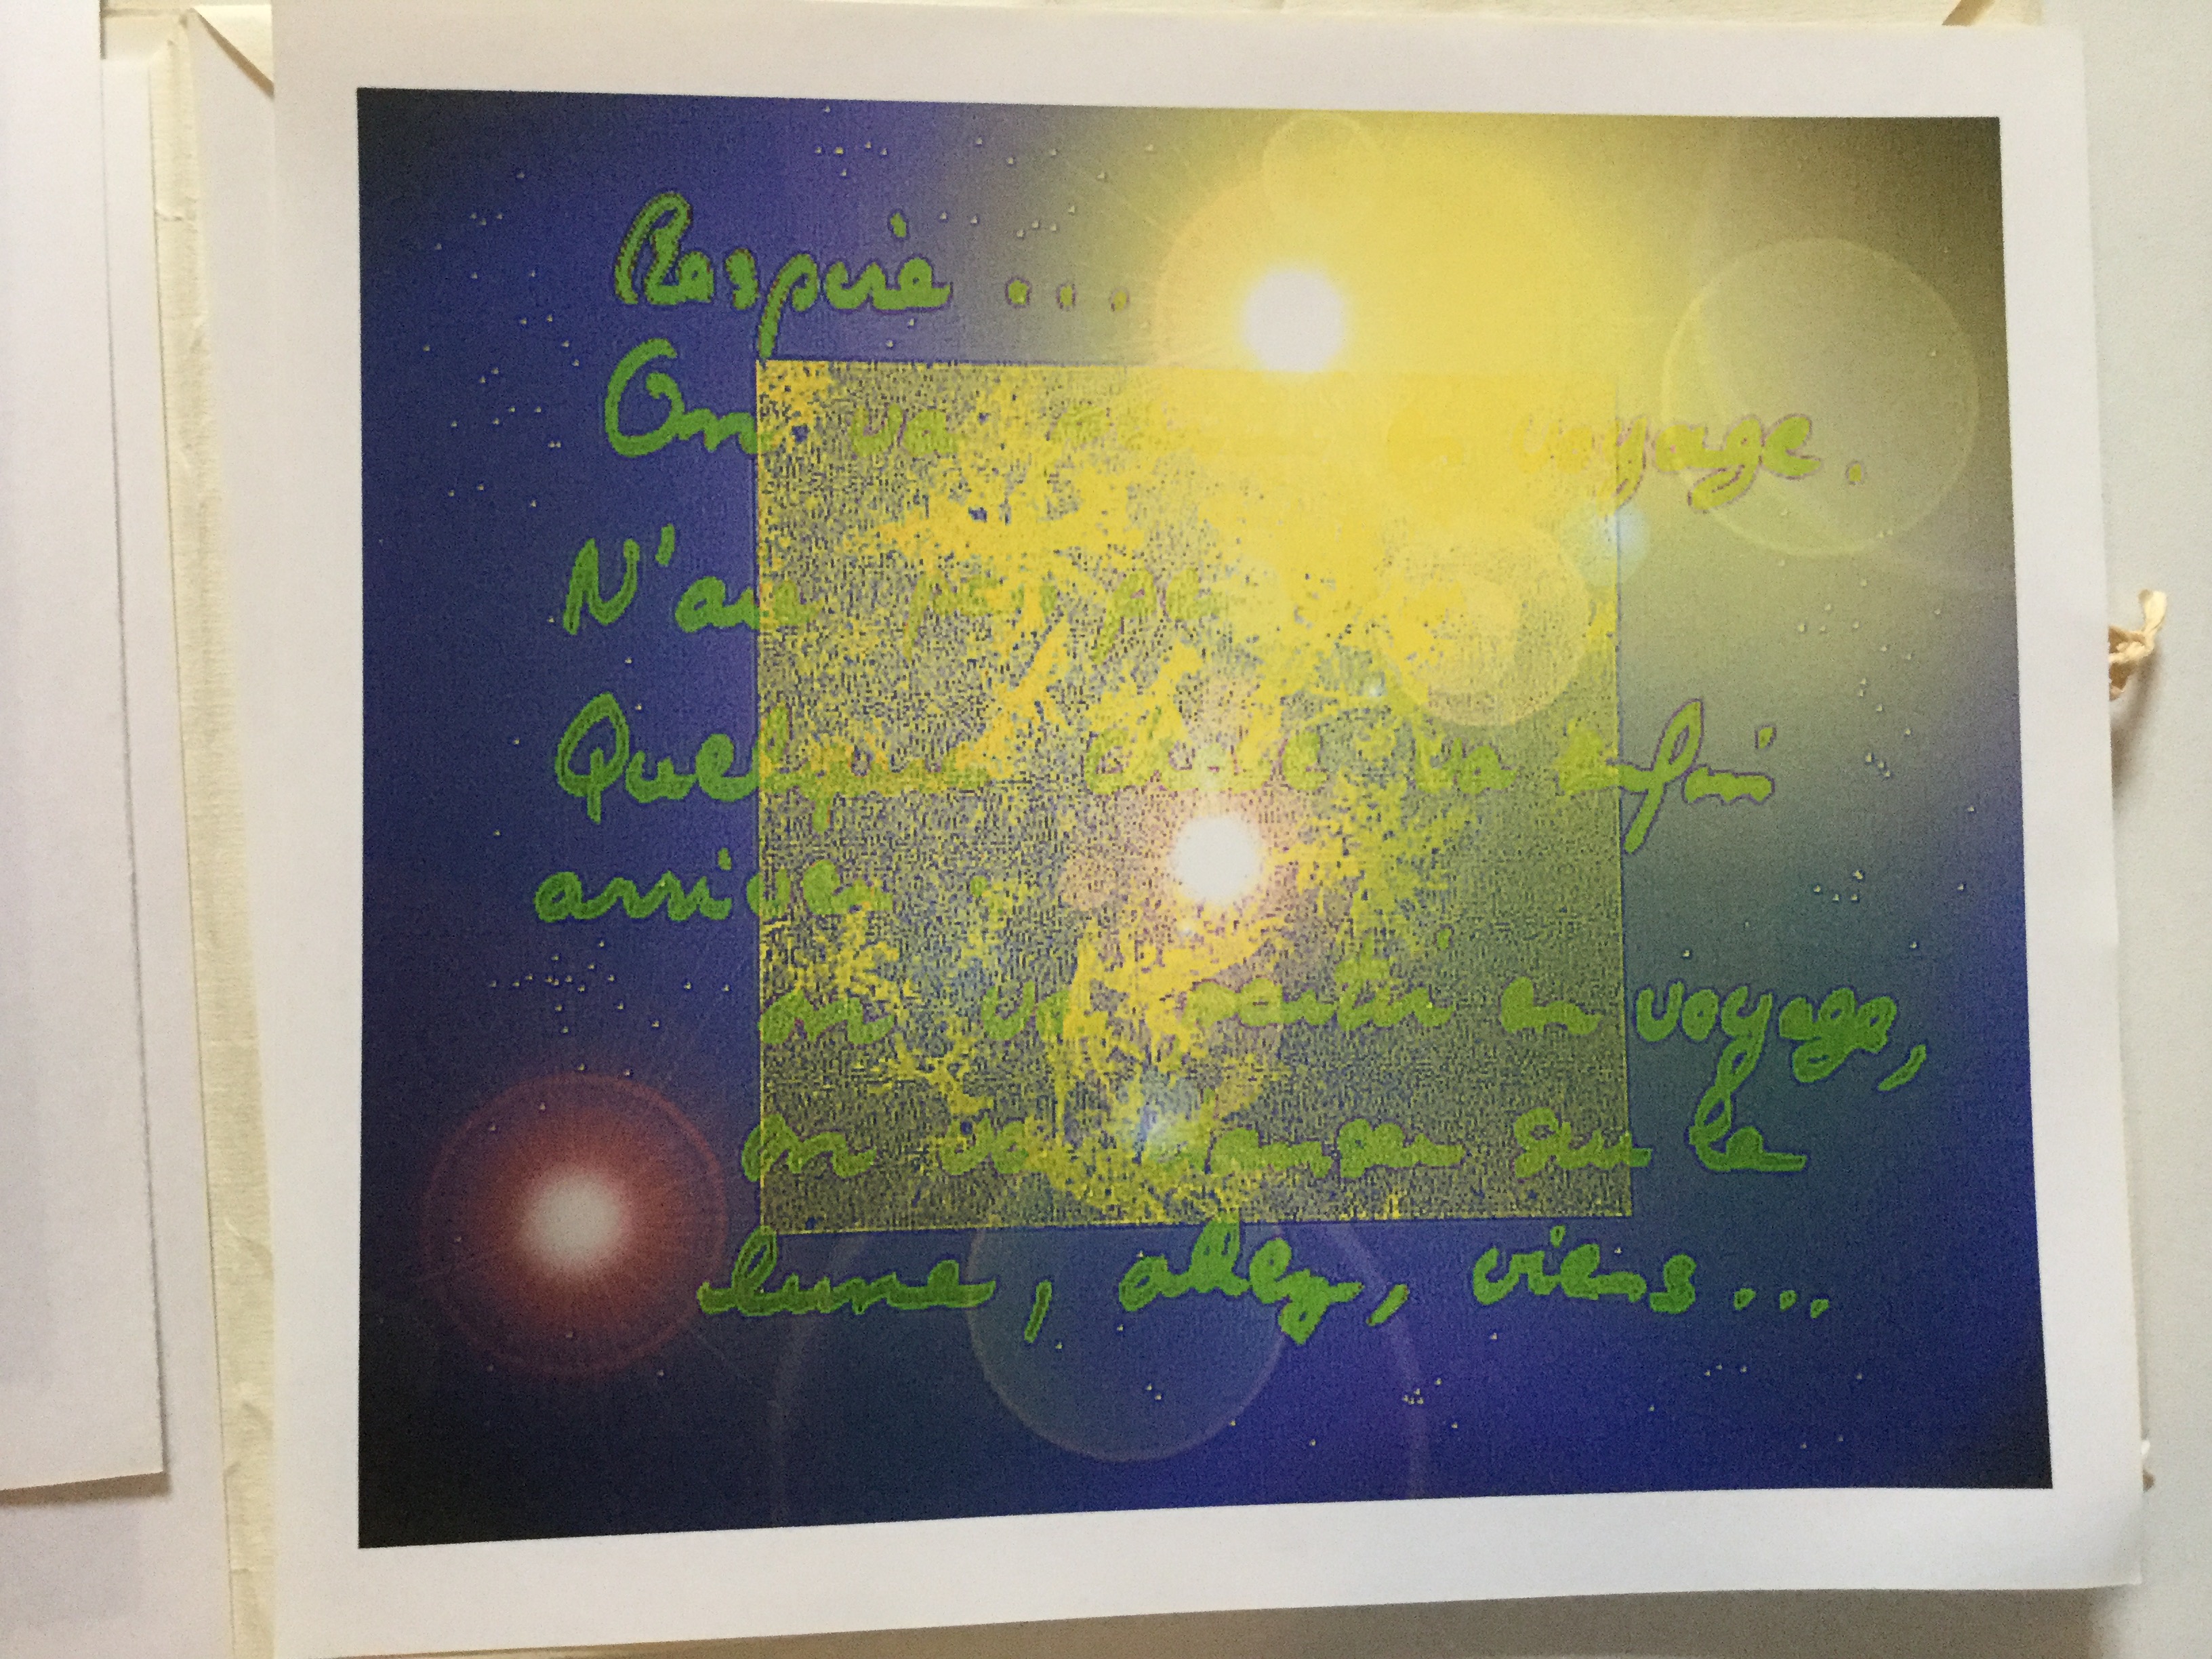 Respire ...
On va partir en voyage.
N'aie pas peur
Quelque chose va enfin
arriver.
on va partir en voyage,
on va danser sur la
lune, allez, viens...